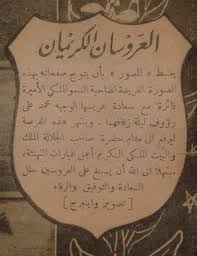 العروسان الكريمان
يغتبط «المصور» بأن يتوج صفحاته بهذه
الصورة الفريدة لصاحبة السمو الملكي الأميرة
فائزة مع سعادة عريسها الوجيه محمد علي
رؤوف ليلة زفافهما. وينتهز هذه الفرصة
ليرفع الى مقام حضرة صاحب الجلالة الملك
والبيت المالكي الكريم أجمل عبارات التهنئة،
مبتهلا الى الله أن يسبغ على العروسين حلل
السعادة والتوفيق والرفاء
[تصوير واينبرج]